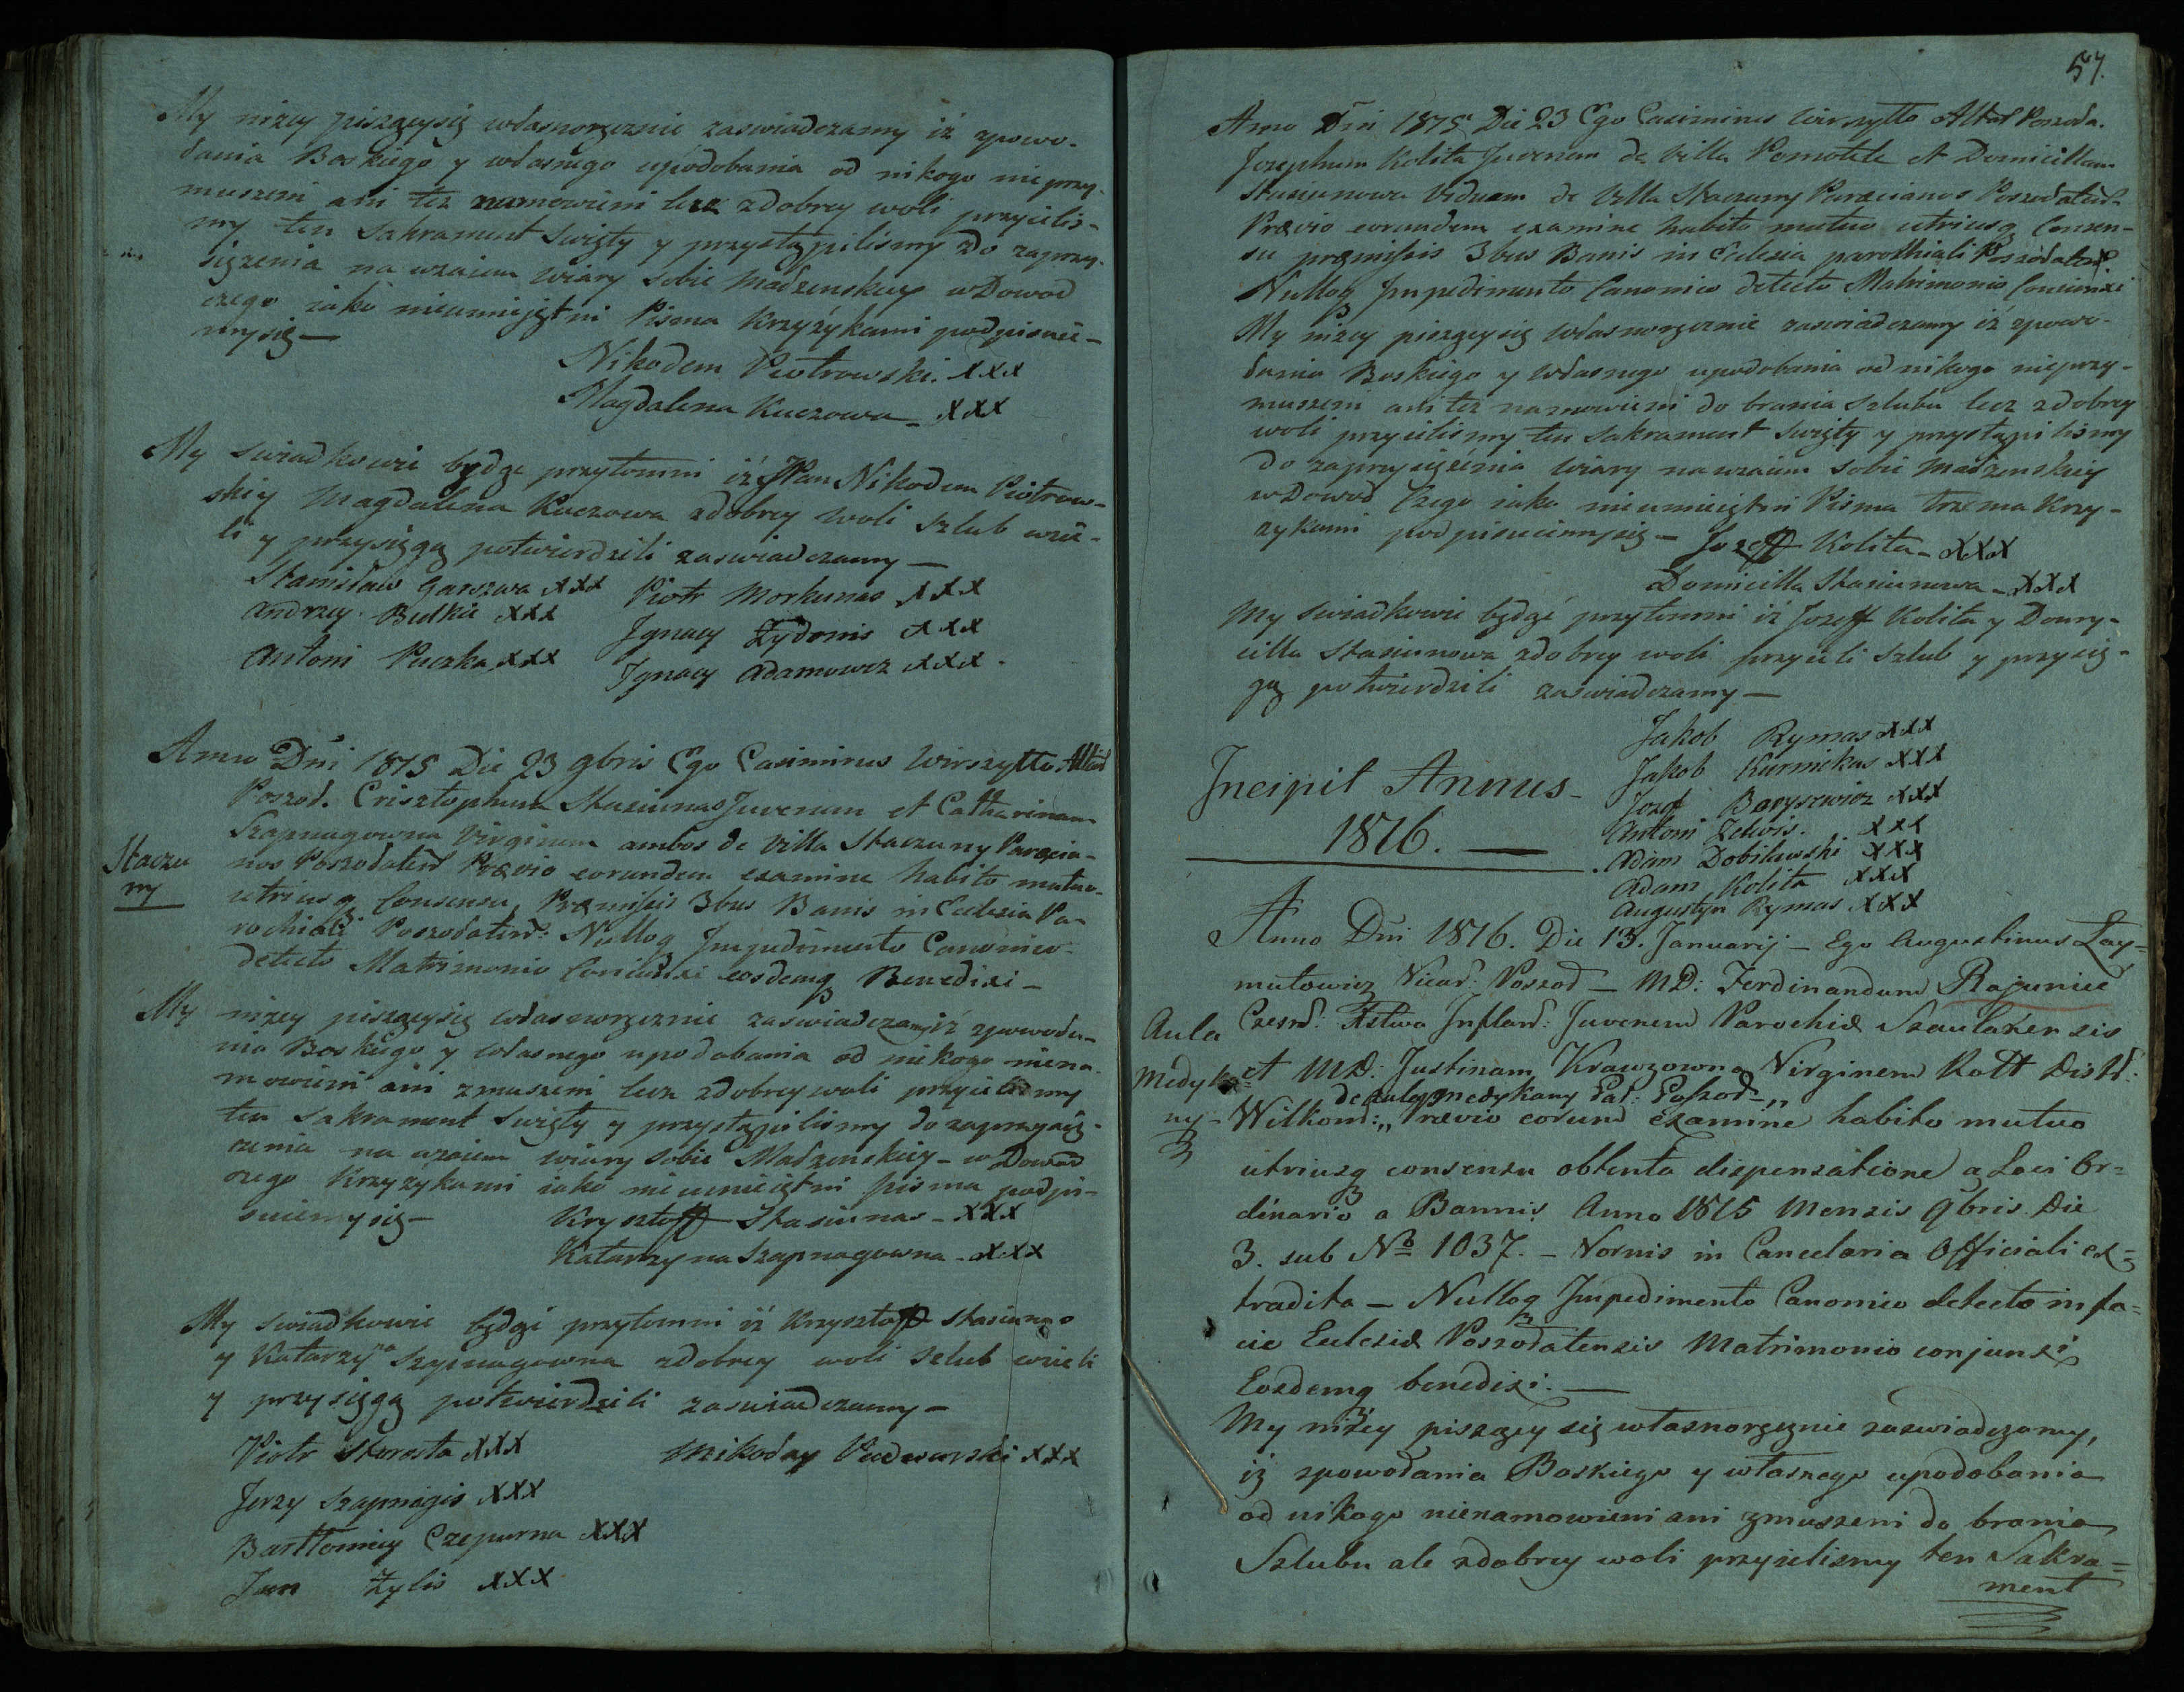 My niżey piszącysię własnorgcznie zaswiadczamy iż zpowo-
dania Boskiego y własnego upodobania od nikogo nieprzy-
muszeni ani tez namowieni lecz zdobrey woli przyielis-
my ten Sakrament Swięty y przystąpilismy do zaprzy-
siężenia na wzaiem Wiary Sobie Madzenskiey w Dowod
czego iako nieumiejętni Pisma Krzyżykami podpisuie-
mysię—
Nikodem Piotrowski. XXX
Magdalena Kuczowa - XXX
My swiadkowie będąc przytomni iż JPan Nikodem Piotrow-
ski y Magdalena Kuczowa zdobrey woli szlub wzie-
li y przysięgą potwierdzili zaswiadczamy—
Stanisław Garszwa XXX Piotr Morkunas XXX
Andrzey Butkie XXX Jgnacy Zydonis XXX
Antoni Puczka XXX Jgnacy Adamowicz XXX.
Anno Dni 1815 Die 23 9bris Ego Casimirus Wirszytto Altar
Poszod. Crisztophum Stasiunas Juvenem et Catharinam
Szapnagowna Virginem ambos de Villa Staczuny Parecia-
Staczu
ny
nos Poszodaten Prævio eorundem examine habito mutuo
utriusq Consensu, Præmissis 3bus Banis in Eclezia Pa-
rochiali Poszodaten: Nulloq Impedimento Canonico
detecto Matrimonio Coniunxi eosdemq Benedixi—
My niżey piszącysię własnorgcznie zaswiadczamy iż zpowoda-
nia Boskiego y własnego upodobania od nikogo niena-
mowieni ani zmuszeni lecz zdobrey woli przyielismy
ten Sakrament Swięty y przystąpilismy do zaprzysię-
zenia na wzaiem wiary Sobie Madzenskiey - w Dowod
czego Krzyżykami iako nieumieiętni pisma podpi-
suiemysię—
Krysztoff Stasiunas - XXX
Katarzyna Szapnagowna - XXX
My swiadkowie będąc przytomni iż Krzysztoff Stasiunas
y Katarzyna Szapnagowna zdobrey woli szlub wzieli
y przysięgą potwierdzili zaswiadczamy—
Piotr Starosta XXX Mikołay XXX
Jerzy Szapnagis XXX
Bartłomiey Czepurna XXX
Jan Zylis XXX
57.
Anno Dni 1815 Die 23 Ego Casimirus Wirszytto Altar Poszoda.
Jozephum Kolita Juvenem de Villa Pomotele et Domicillam
Stasiunowa Viduam de Villa Staczuny Parecianos Poszodaten
Prævio eorundem examine habito mutuo utriusq Consen-
su præmissis 3bus Banis in Eclezia parochiali Poszodaten
Nulloq Jmpedimento Canonico detecto Matrimonio Coniunxi
My niżey piszącysię własnorgcznie zaswiadczamy iż zpowo-
dania Boskiego y własnego upodobania od nikogo nieprzy-
muszeni ani też namowieni do brania szlubu lecz zdobrey
woli przyielismy ten Sakrament Swięty y przystąpilismy
do zaprzysiężenia Wiary nawzaiem Sobie Madzenskiey
wDowod Czego iako nieumieiętni Pisma trzema Krzy-
zykami podpisuiemysię— Jozeff Kolita - XXX
Domicilla Stasiunowa - XXX
My swiadkowie będąc przytomni iż Jozeff Kolita y Domy-
cilla Stasiunowa zdobrey woli przyieli szlub y przysię-
gą potwierdzili zaswiadczamy—
Jakob Rymas XXX
Jakob Kurnickas XXX
Jozef Baryszewicz XXX
Antoni Zelwis. XXX
Adam Dobilewski XXX
Adam Kolita XXX
Augustyn Rymas XXX
Jncipit Annus
1816. —
Anno Dni 1816. Die 13. Januarij - Ego Augustinus Lay=
mutowicz Vicar: Poszod — MD: Ferdinandum Rajuniec
Aula
Medyka-
ny
Czesn: Xstwa Jnfland: Juvenem Parochiæ Szaularensis
et MD: Justinam Krawzowna Virginem Rott Distr:
de aula medykany Par: Poszod-,,
Wilkom:,, Prævio eorum examine habito mutuo
utriusq consensu obtenta dispensatione a Loci Or=
dinario a Bannis Anno 1815 Mensis 9bris Die
3. sub No 1037. - Vorniis in Cancelaria Officiali ex=
tradita — Nulloq Jmpedimento Canonico detecto in fa=
cie Ecleziæ Poszodatensis Matrimonio conjunxi
Eosdemq benedixi. —
My niżey piszący się własnoręcznie zaswiadczamy,
iż zpowodania Boskiego y własnego upodobania
od nikogo nienamowieni ani zmuszeni do brania
Szlubu ale zdobrey woli przyielismy ten Sakra=
ment